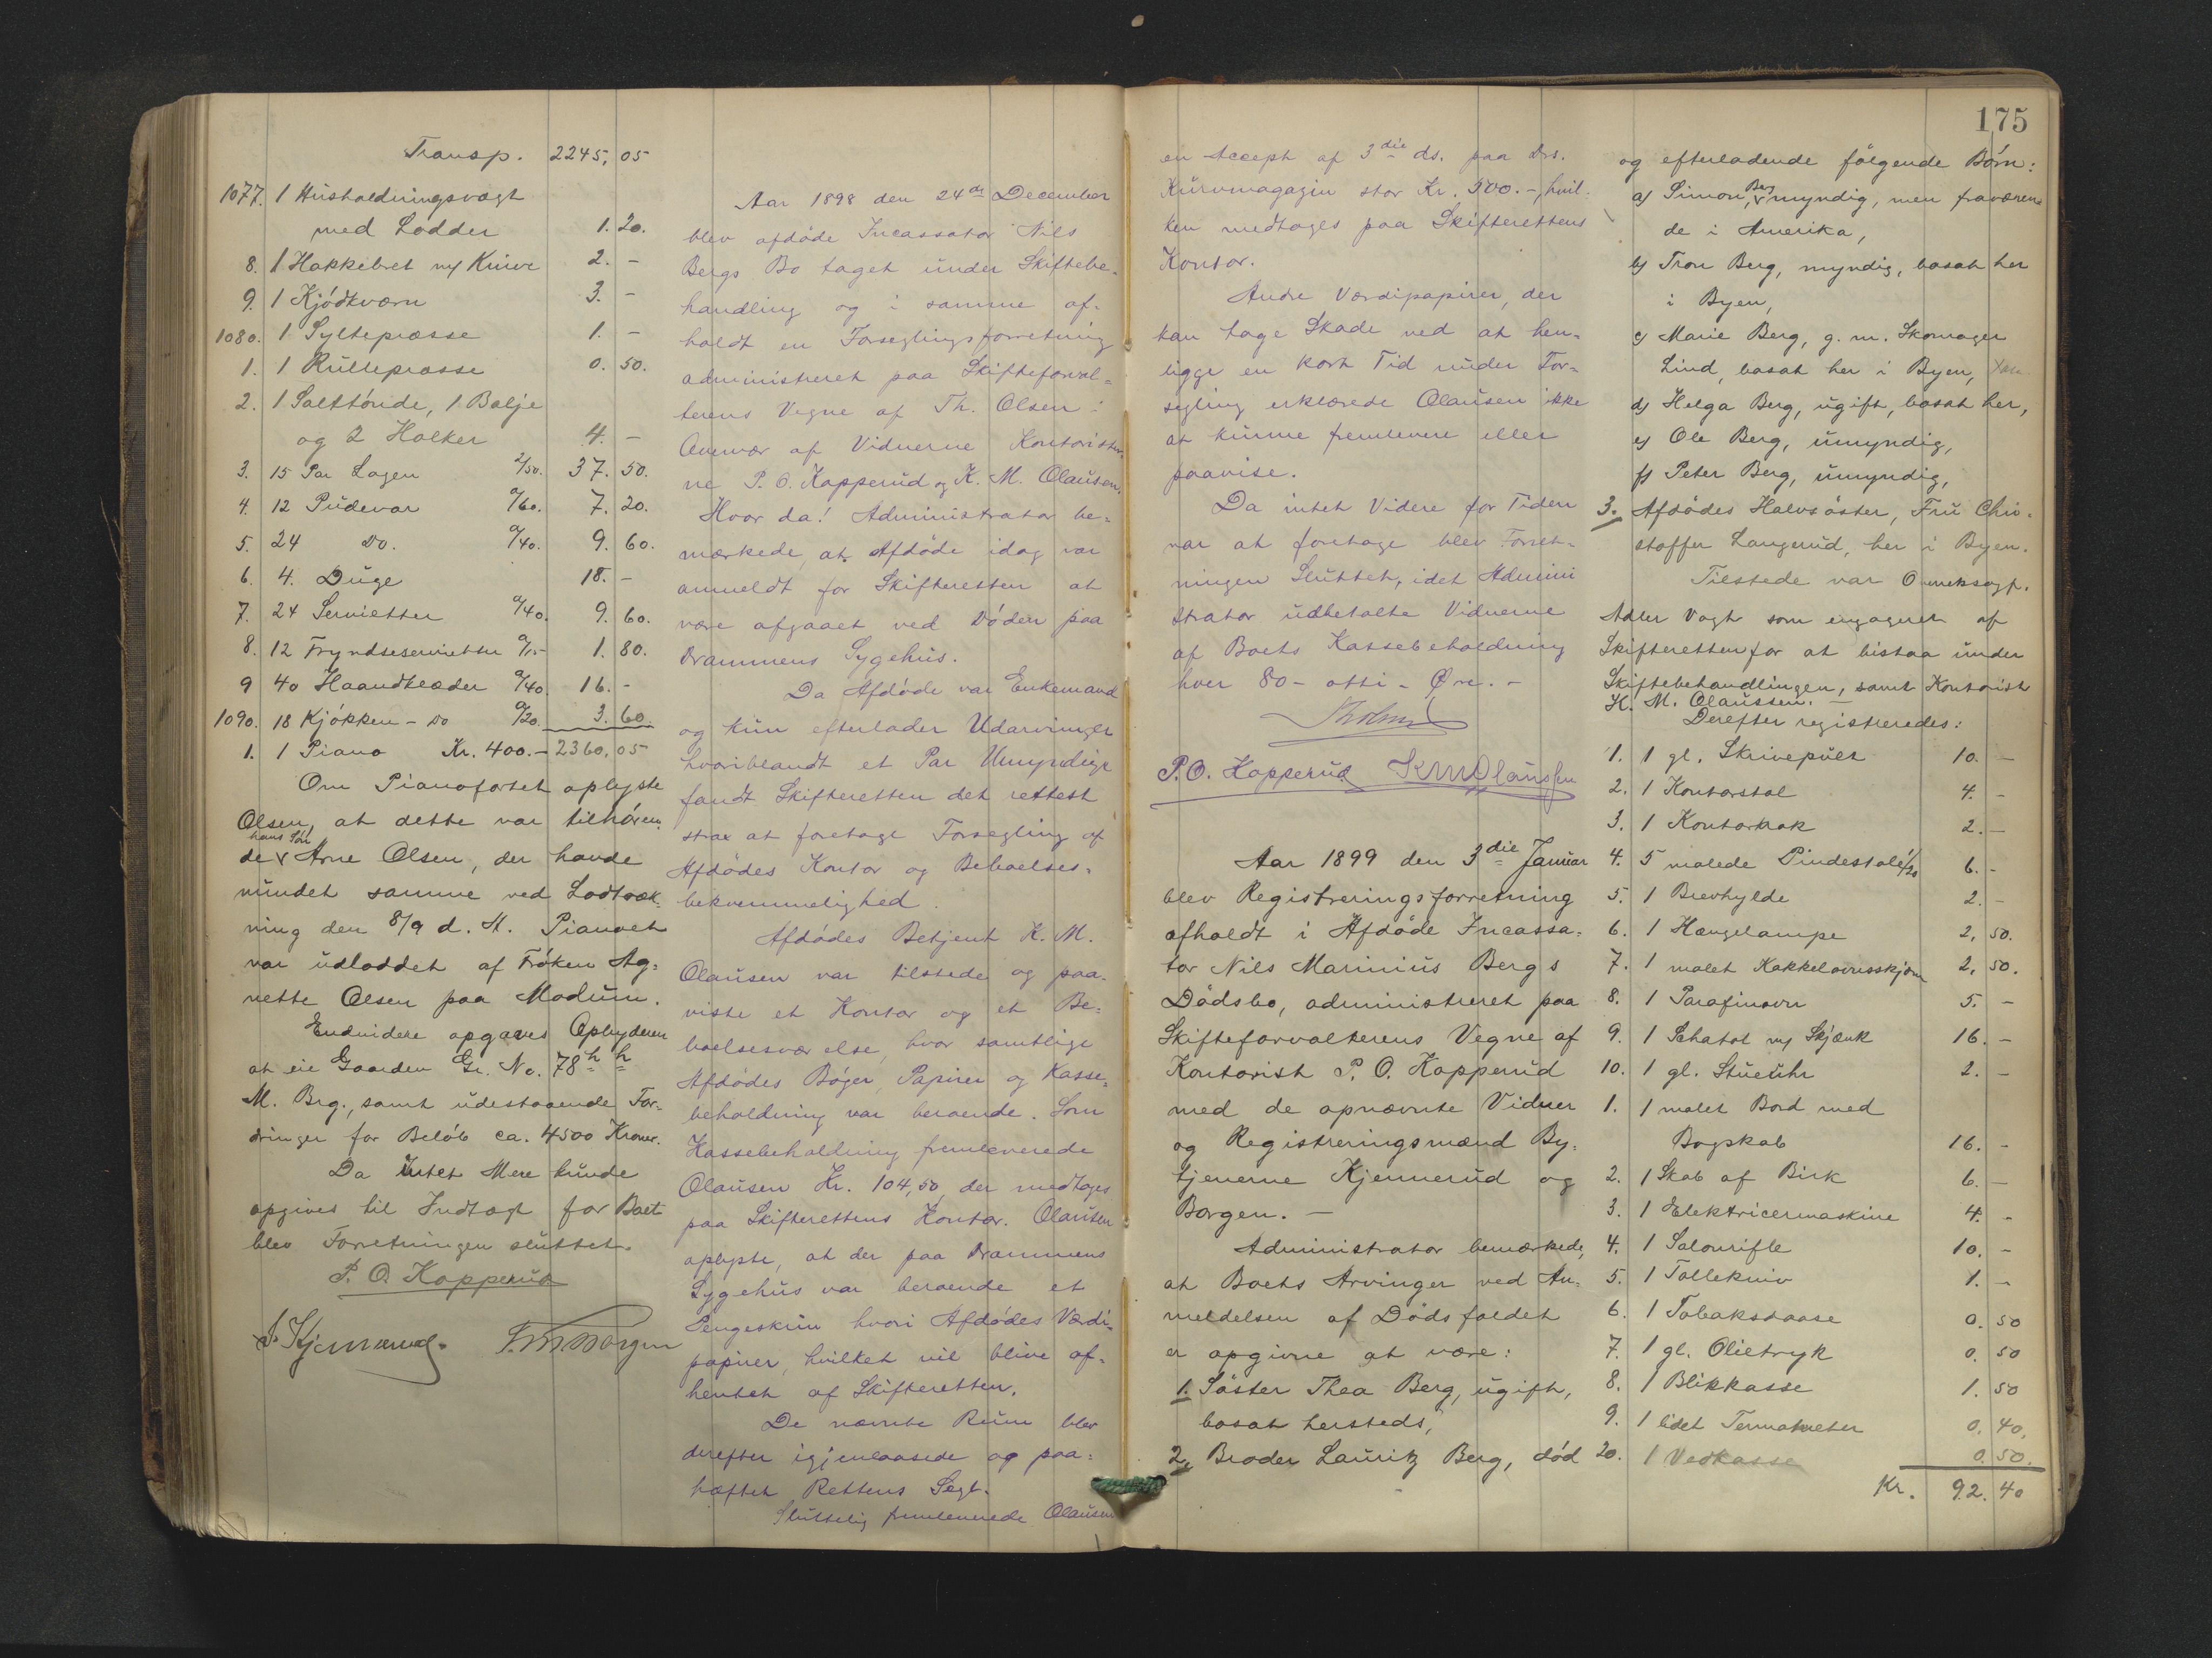 Transp. 2245, 05
1077. 1 Husholdningsvægt
med Lodder 1. 20.
8. 1 Hakkebret m/ Knive 2. -
9. 1 Kjödkværn 3. -
1080. 1 Syltepræsse 1. -
1. 1 Rullepræsse 0. 50.
2. 1 Salttönde, 1 Balje
og 2 Holker 4. -
3. 15 Par Lagen 2/50. 37. 50.
4. 12 Pudevar a/60. 7. 20.
5. 24 Do. a/40. 9. 60.
6. 4. Duge 18. -
7. 24 Servietter a/40. 9. 60.
8. 12 Fryndseservietter a/15 1. 80.
9 40 Haandklæder a/40. 16. -
1090. 18 Kjökken - Do a/20. 3. 60.
1. 1 Piano Kr. 400.- 2360, 05
Om Pianofortet oplyste
Olsen, at dette var tilhören-
de hans Sön Arne Olsen, der havde
vundet samme ved Lodtræk-
ning den 8/9 d. A. Pianoet
var udloddet af Fröken Ag-
nette Olsen paa Modum.
Endvidere opgaves Opbyderen
at eie Gaarden Gr. No. 78 h h
M. Brg., samt udestaaende For-
dringer for Belöb ca. 4500 Kroner.
Da Intet Mere kunde
opgives til Indtægt for Boet
blev Forretningen sluttet.
P. O. Kopperud
J. Kjennerud. F. M. Borgen
Aar 1898 den 24de December
blev afdöde Incassator Nils
Bergs Bo taget under Skiftebe-
handling og i samme af-
holdt en Forseglingsforretning
administreret paa Skifteforval-
terens Vegne af Th. Olsen i
Overvær af Vidnerne Kontorister-
ne P. O. Kopperud og K. M. Olausen.
Hvor da! Administrator be-
mærkede, at Afdöde idag var
anmeldt for Skifteretten at
være afgaaet ved Döden paa
Drammens Sygehus.
Da Afdöde var Enkemand
og kun efterlader Udarvinger
hvoriblandt et Par Umyndige
fandt Skifteretten det rettest
strax at foretage Forsegling af
Afdödes Kontor og Beboelses-
bekvemmelighed.
Afdödes Betjent K. M.
Olausen var tilstede og paa-
viste et Kontor og et Be-
boelsesværelse, hvor samtlige
Afdödes Böger, Papirer og Kasse-
beholdning var beroende. Som
Kassebeholdning fremleverede
Olausen Kr. 104,50, der medtoges
paa Skifterettens Kontor. Olausen
oplyste, at der paa Drammens
Sygehus var beroende et
Pengeskrin hvori Afdödes Værdi-
papirer, hvilket vil blive af-
hentet af Skifteretten.
De nævnte Rum blev
derefter igjenlaasede og paa-
hæftet Rettens Segl.
Sluttelig fremleverede Olausen
175
en Accept af 3die ds. paa Drs.
Kurvmagazin stor Kr. 500.-, hvil-
ken medtoges paa Skifterettens
Kontor.
Andre Værdipapirer, der
kan tage Skade ved at hen-
ligge en kort Tid under For-
segling erklærede Olausen ikke
at kunne fremlevere eller
paavise.
Da intet Videre for Tiden
var at foretage blev Forret-
ningen Sluttet, idet Admini
strator udbetalte Vidnerne
af Boets Kassebeholdning
hver 80 - otti - Öre. -
P. O. Kopperud KM Olaussen
Aar 1899 den 3die Januar
blev Registreringsforretning
afholdt i Afdöde Incassa-
tor Nils Marinius Bergs
Dödsbo, administreret paa
Skifteforvalterens Vegne af
Kontorist P. O. Kopperud
med de opnævnte Vidner
og Registreringsmænd By-
tjenerne Kjennerud og
Borgen. -
Administrator bemærkede,
at Boets Arvinger ved An-
meldelsen af Dödsfaldet
er opgivne at være:
1. Söster Thea Berg, ugift,
bosat hersteds,
2. Broder Lauritz Berg, död
og efterladende fölgende Börn:
a) Simon Berg, myndig, men fraværen-
de i Amerika,
b) Tron Berg, myndig, bosat her
i Byen,
c) Marie Berg, g. m. Skomager
Lind, bosat her i Byen,
d) Helga Berg, ugift, bosat her,
e) Ole Berg, umyndig,
f) Peter Berg, umyndig,
3. Afdödes Halvsöster, Fru Chri-
stoffer Langerud, her i Byen.
Tilstede var Overretssagf.
Adler Vogt som engageret af
Skifteretten for at bistaa under
Skiftebehandlingen, samt Kontorist
K. M. Olaussen. -
Derefter registreredes:
1. 1 gl. Skrivepult 10. -
2. 1 Kontorstol 4. -
3. 1 Kontorkrak 2. -
4. 5 malede Pindestole 1/20 6. -
5. 1 Brevhylde 2. -
6. 1 Hængelampe 2, 50.
7. 1 malet Kakkelovnsskjærm 2, 50.
8. 1 Parafinovn 5. -
9. 1 Schatol m/ Skjænk 16. -
10. 1 gl. Stueuhr 2. -
1. 1 malet Bord med
Bogskab 16. -
2. 1 Skab af Birk 6. -
3. 1 Elektricermaskine 4. -
4. 1 Salonrifle 10. -
5. 1 Tollekniv 1. -
6. 1 Tobaksdaase 0. 50
7. 1 gl. Olietryk 0. 50
8. 1 Blikkasse 1. 50
9. 1 lidet Termometer 0. 40.
20. 1 Vedkasse 0. 50.
Kr. 92. 40